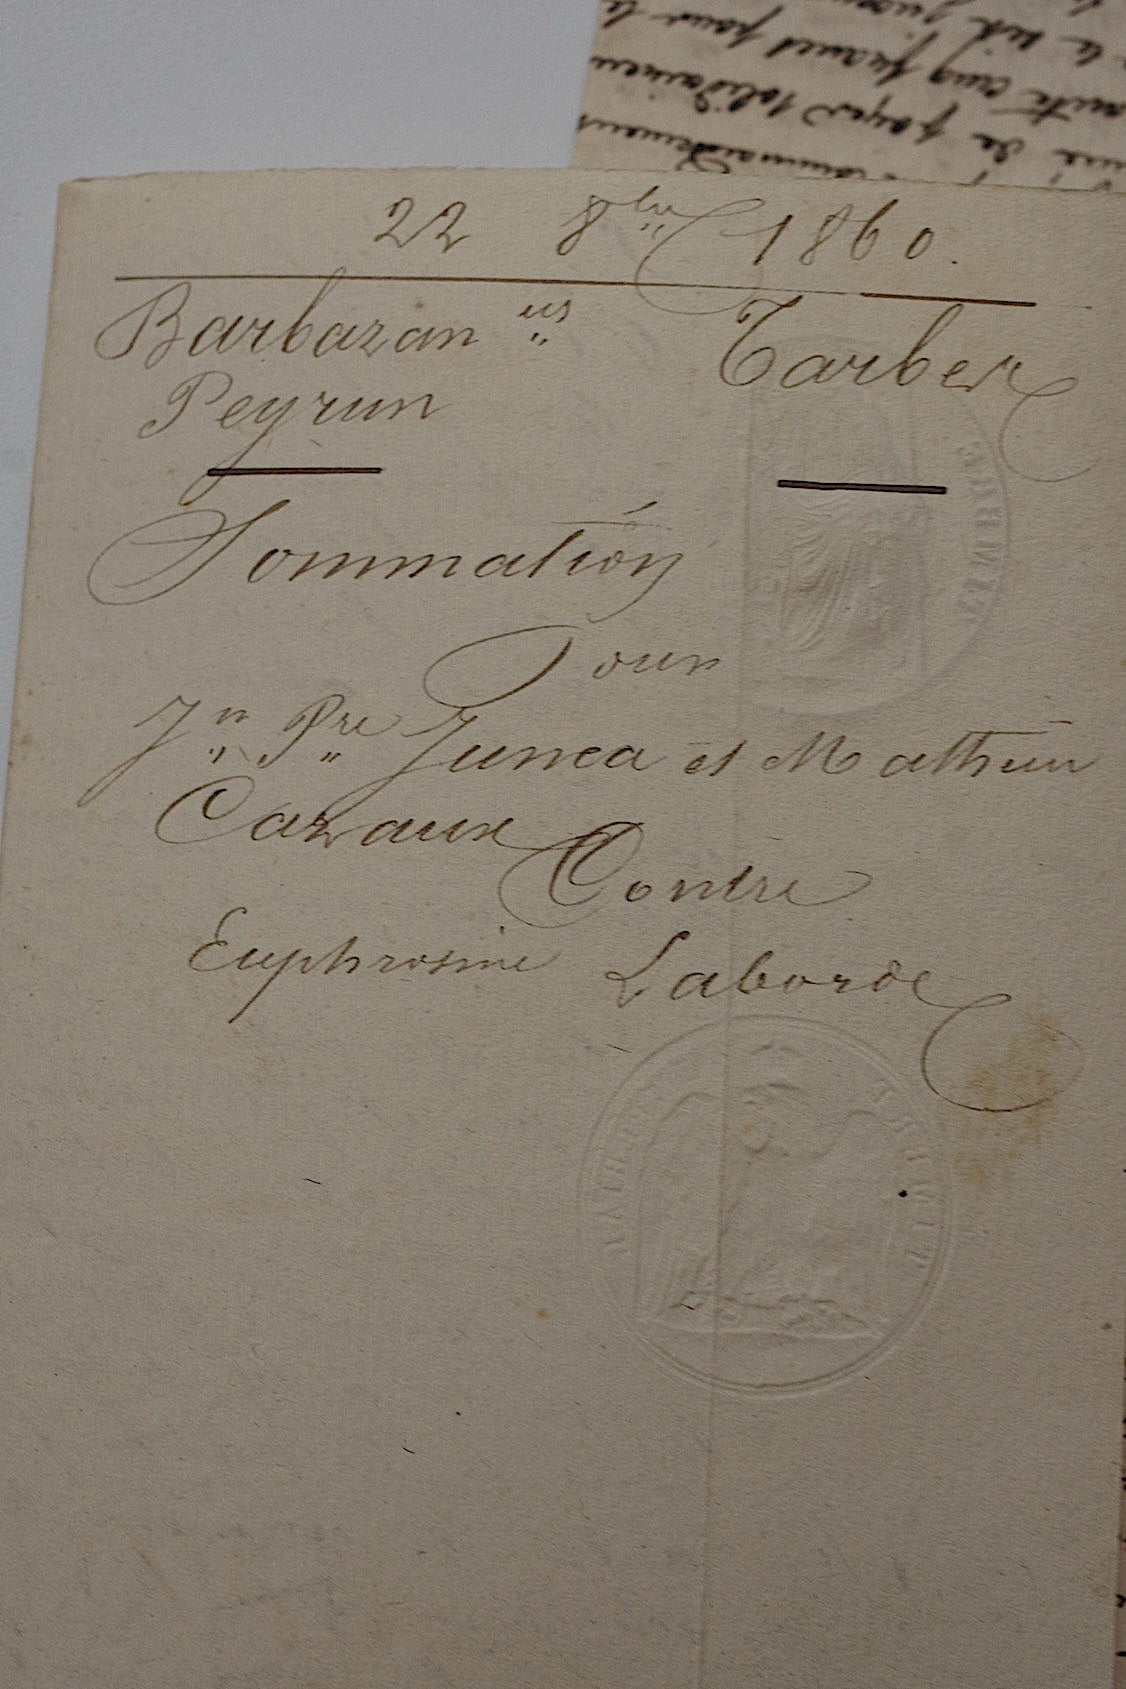 22 8bre 1860.
Barbazan us Tarbes
Peyrun
Sommation
Pour
Jn Pre Junca et Mathieu
Cazaux Contre
Euphrosine Laborde
TIMBRE